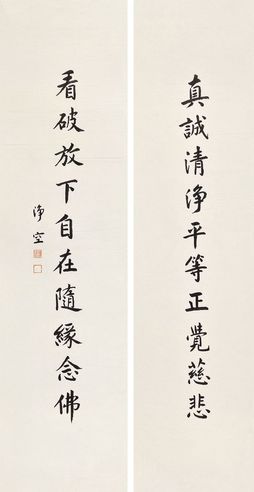 真誠清淨平等正覺慈悲
看破放下自在隨緣念佛
淨空